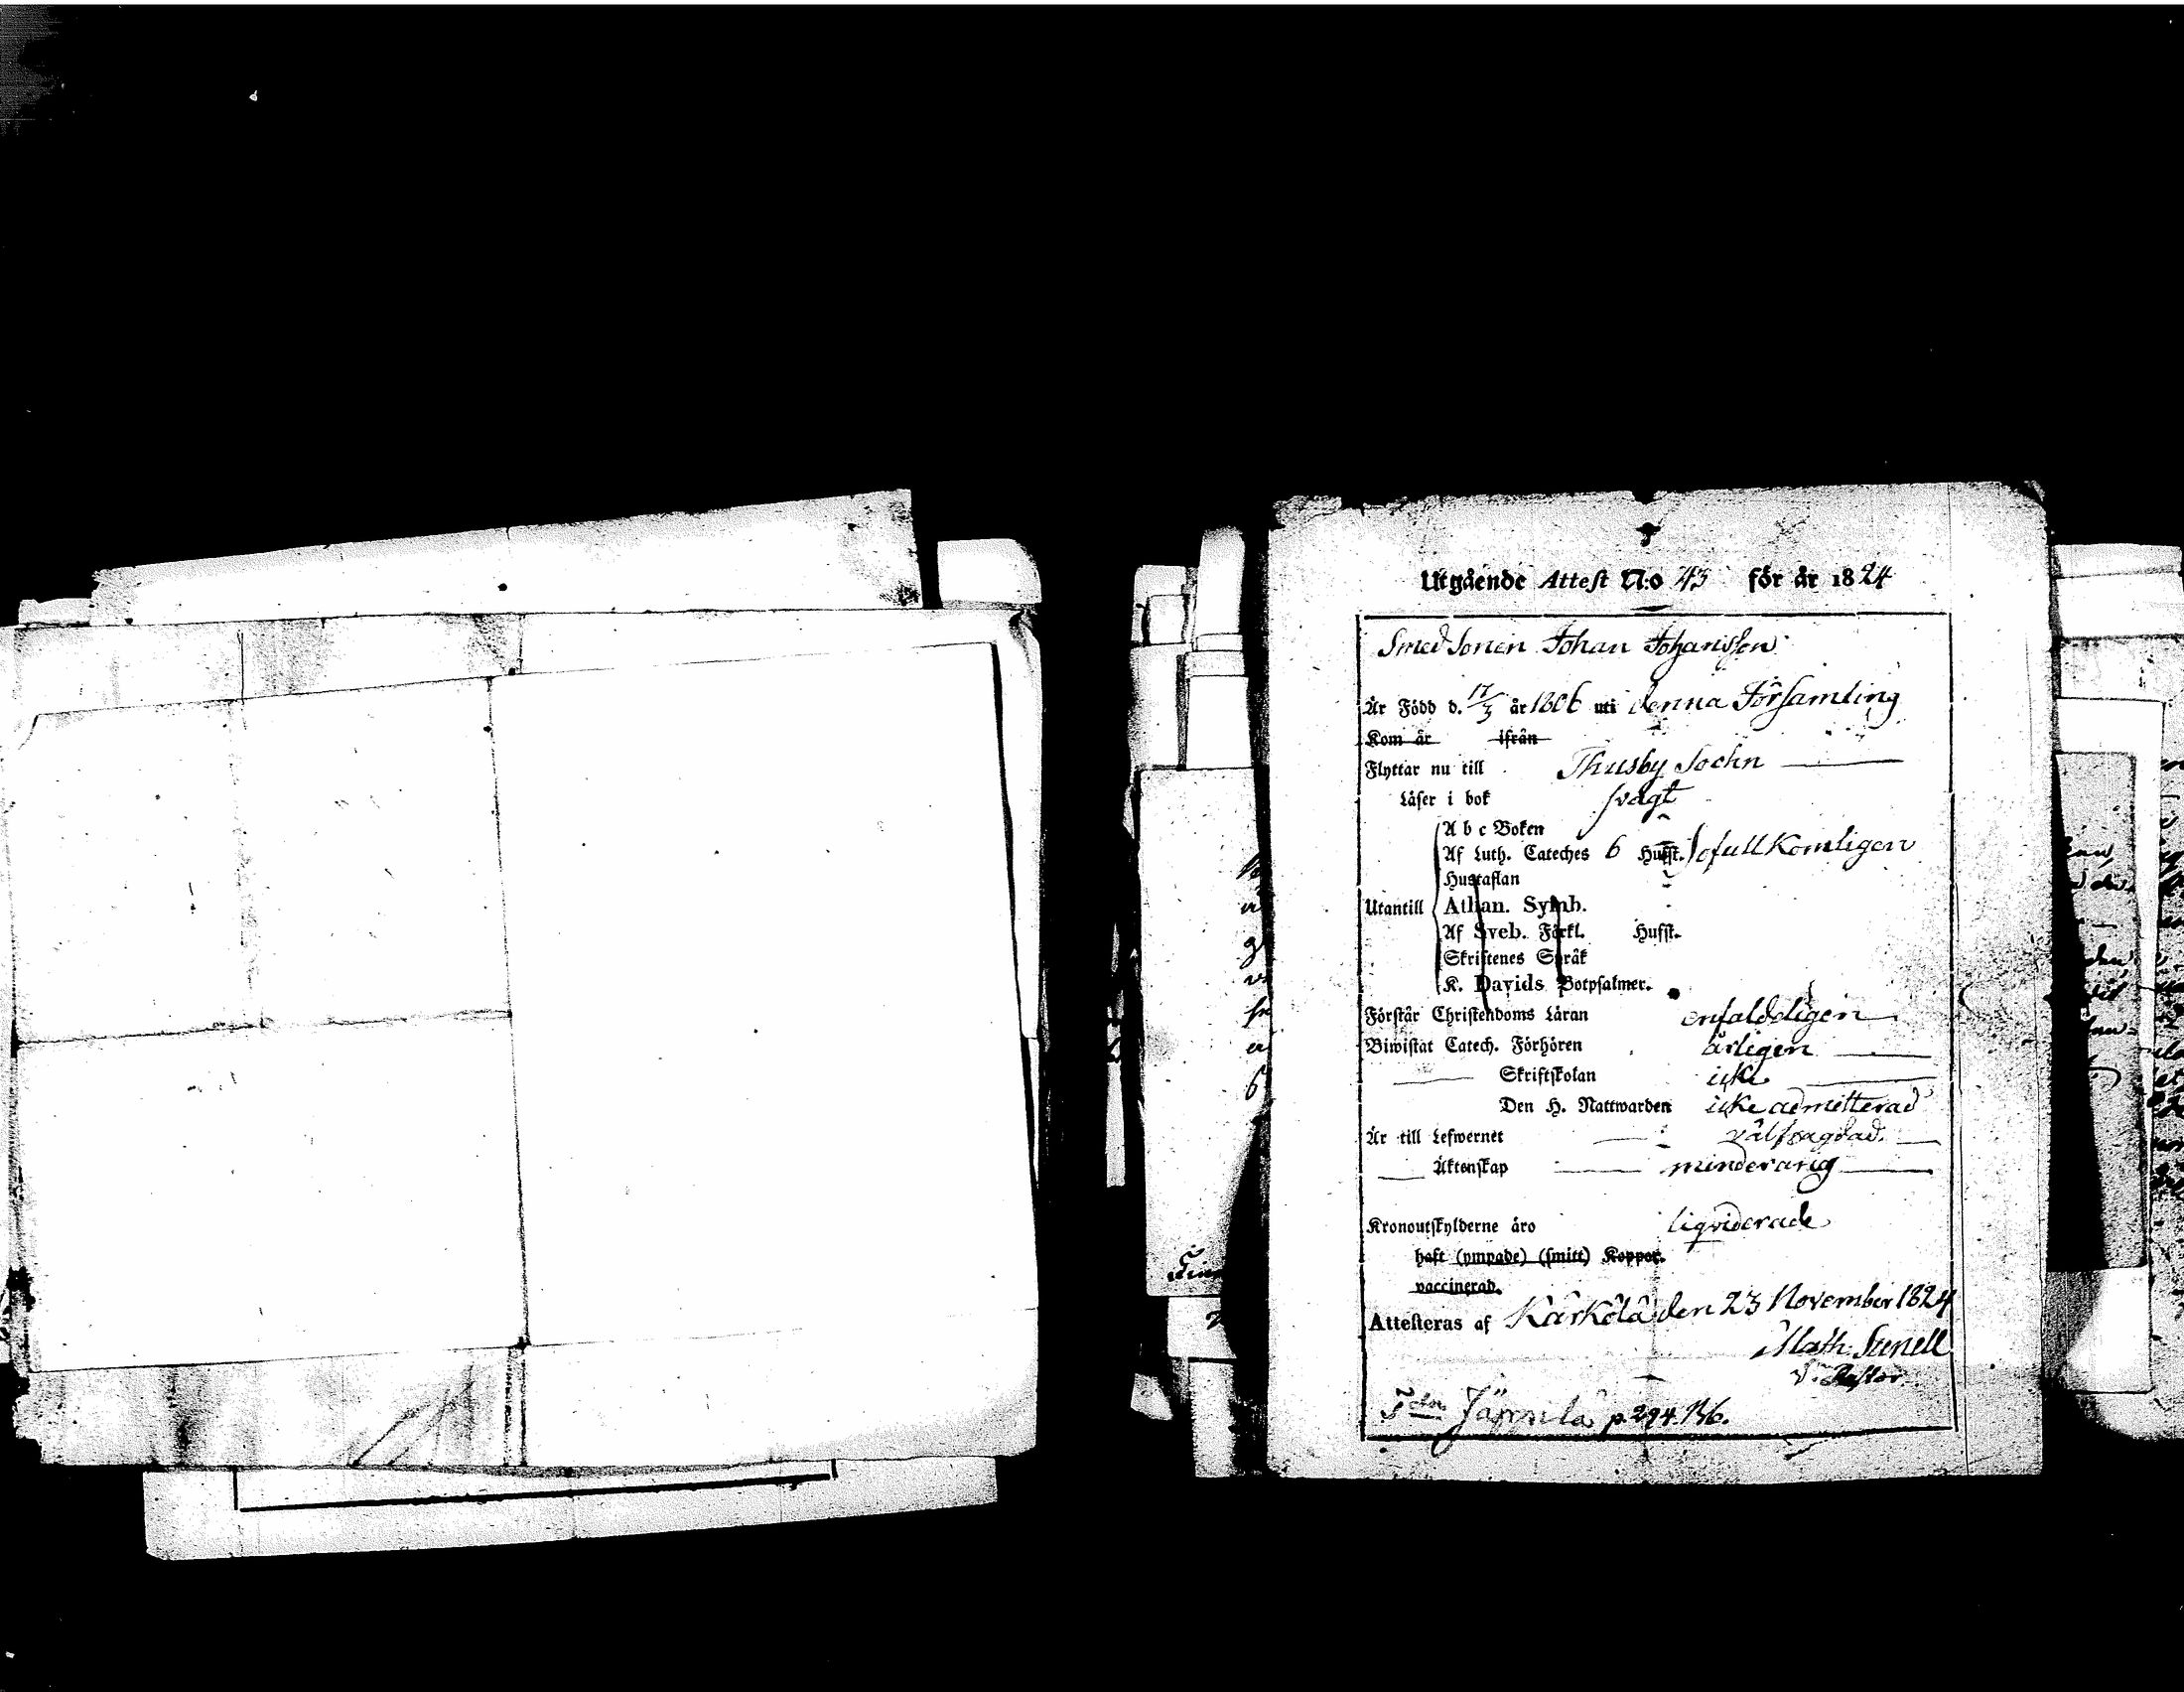 Utgående Attest N:o 43 för år 1824
Smed Sonen Johan Johansson
Är Född d. 17/3 år 1806 uti denna Församling
Kom år ifrån
Flyttar nu till Thusby Sochn
Läser i bok svagt
A b c Boken
Af Luth. Cateches 6 Hufst. ofullkomligen
Hustaflan
Utantill Athan. Symb.
Af Sveb. Förkl. Hufst.
Skriftenes Språk
K. Davids Botpsalmer.
Förstår Christendoms Läran enfaldeligen
Biwistat Catech. Förhören årligen
Skriftskolan icke
Den H. Nattwarden icke admitterad
Är till Lefwernet välfragdad.
Äktenskap minderårig
Kronoutskylderne äro liqviderade
haft (ympade) (smitt) Koppor.
vaccinerad.
Attesteras af Kärkölä den 23 November 1824
Math: Stenell
V. Pastor.
Järvilä p. 294. 136.